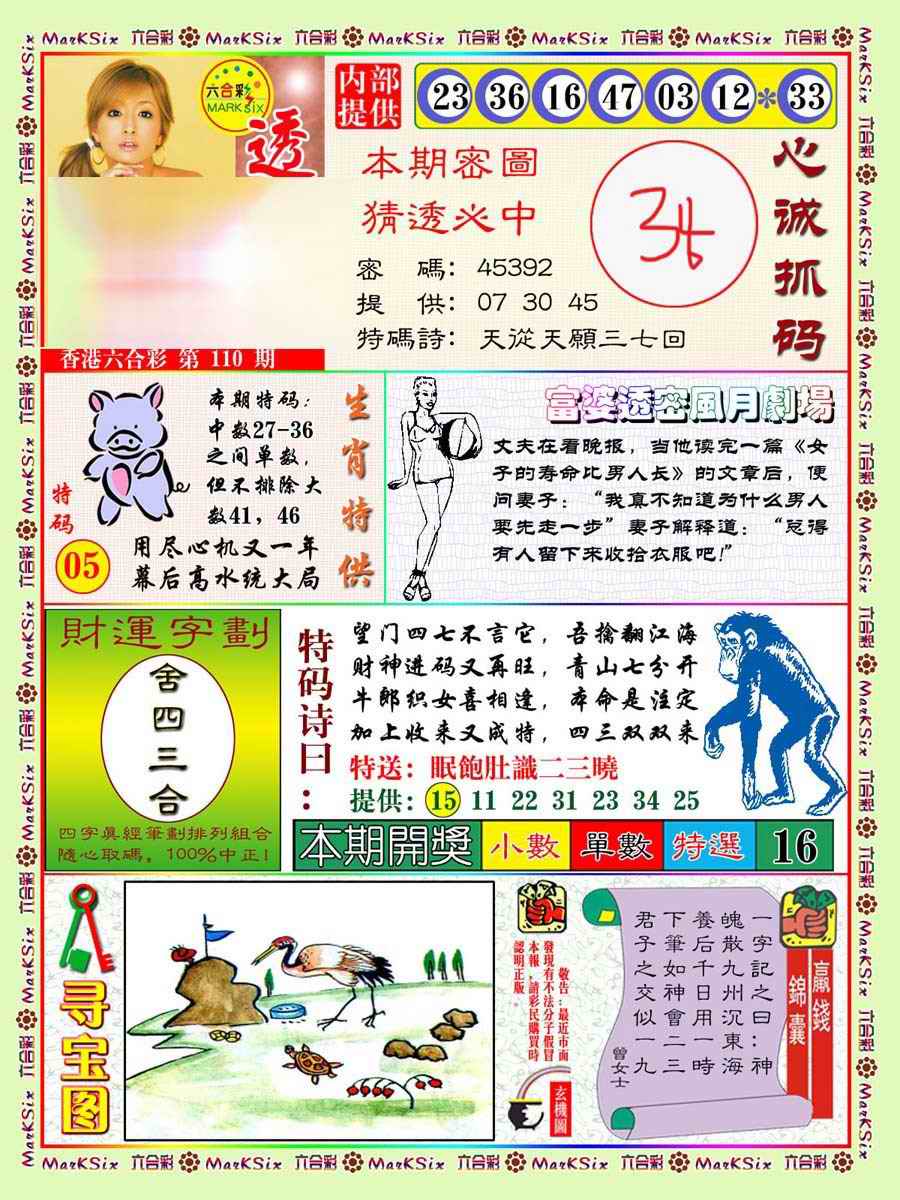 MarKSix 六合彩 MarKSix 六合彩 MarKSix 六合彩 MarKSix 六合彩 MarKSix 六合彩
六合彩
MARK SIX
透
内部
提供
23 36 16 47 03 12 * 33
本期密圖
猜透必中
密 碼: 45392
提 供: 07 30 45
特碼詩: 天從天願三七回
心诚抓码
香港六合彩 第 110 期
特码
05
本期特码:
中数27-36
之间单数,
但不排除大
数41, 46
用尽心机又一年
幕后高水统大局
生肖特供
富婆透密風月劇場
丈夫在看晚报，当他读完一篇《女
子的寿命比男人长》的文章后，便
问妻子：“我真不知道为什么男人
要先走一步”妻子解释道：“总得
有人留下来收拾衣服吧!”
財運字劃
舍四三合
四字眞經筆劃排列組合
隨心取碼。100%中正!
特码诗曰:
望门四七不言它，吾擒翻江海
财神进码又再旺，青山七分开
牛郎织女喜相逢，本命是注定
加上收来又成特，四三双双来
特送: 眠飽肚識二三曉
提供: 15 11 22 31 23 34 25
本期開獎 小數 單數 特選 16
寻宝图
敬告:最近市面
發現有不法分子假冒
本報,請彩民購買時
認明正版。
玄機圖
一字記之曰:神
魄散九州沉東海
養后千日用一時
下筆如神會二三
君子之交似一九
曾女士
贏錢
錦囊
MarKSix 六合彩 MarKSix 六合彩 MarKSix 六合彩 MarKSix 六合彩 MarKSix 六合彩